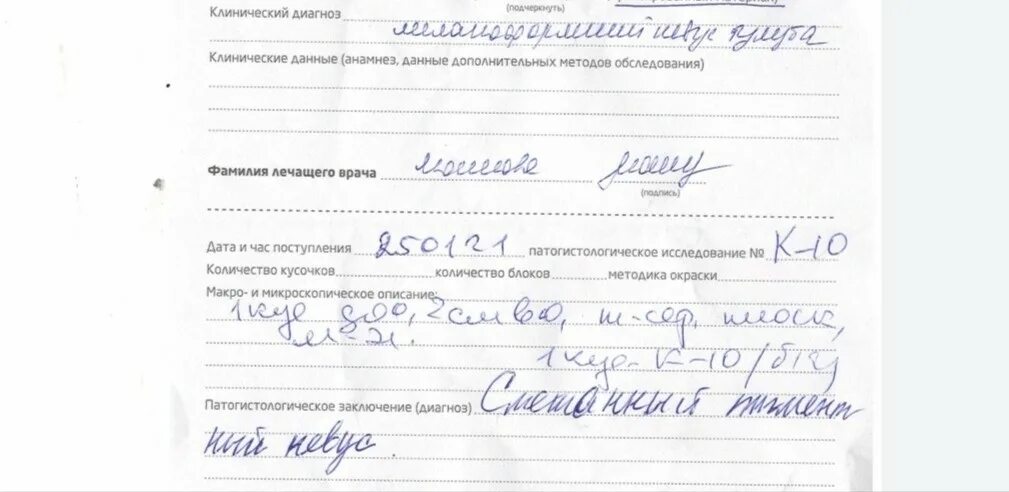 (подчеркнуть)
Клинический диагноз
меланоформный невус
Клинические данные (анамнез, данные дополнительных методов обследования)
Фамилия лечащего врача
(подпись)
Дата и час поступления 250121 патогистологическое исследование № К-10
Количество кусочков количество блоков методика окраски
Макро- и микроскопическое описание:
1 кус до 0,2см в 0, т-сер, плоск,
м-э.
1 кус- К-10
Патогистологическое заключение (диагноз) Смешанный пигмент
ный невус.